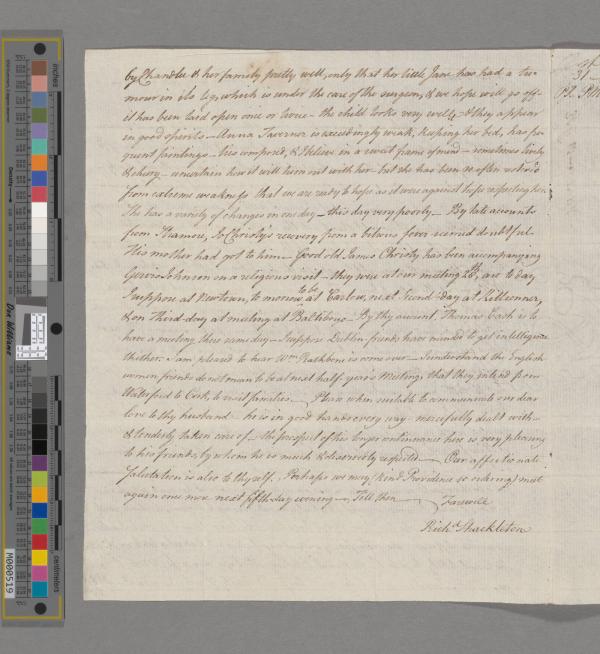 by Chandlee & her family pretty well, only that her little Jane has had a tu=
mour in its leg, which is under the care of the surgeon, & we hope will go off-
it has been laid open once or twice - the child looks very well, & they appear
in good spirits - Anna Taverner is exceedingly weak, keeping her bed, has fre
quent faintings - tries composed, & I believe in a sweet frame of mind - sometimes lively
& cheery - uncertain how it will turn out with her - but she has been so often restor'd
from extreme weakness that we are ready to hope as it were against hope respecting her
She has a variety of changes in one day - this day very poorly. - By late accounts
from Stramore, Jo. Christy's recovery from a bilious fever seemed doubtful -
His mother had got to him - Good old James Christy has been accompanying
Gervis Johnson on a religious visit - they were at our meeting 28th, are to day
I suppose at Newtown, to morrow to be at Carlow, next Second-day at Kilconner,
& on Third-day at meeting at Baltiboys - By thy account Thomas Cash is to
have a meeting there same day - I suppose Dublin friends have minded to get intelligence
thither. I am pleased to hear Wm. Rathbone is come over - I understand the English
women friends do not mean to be at next half-year's Meeting, that they intend from
Waterford to Cork, to visit families - Please when suitable to communicate our dear
love to thy husband - he is in good hands every way - mercifully dealt with -
& tenderly taken care of - the prospect of his longer continuance here is very pleasing
to his friends, by whom he is much & deservedly respected - Our affectionate
salutation is also to thyself. Perhaps we may (kind Providence so ordering) meet
again once more next fifth-day evening - Till then - Farewell
Richd. Shackleton
31
inches
centimetres
Don Williams
M000519